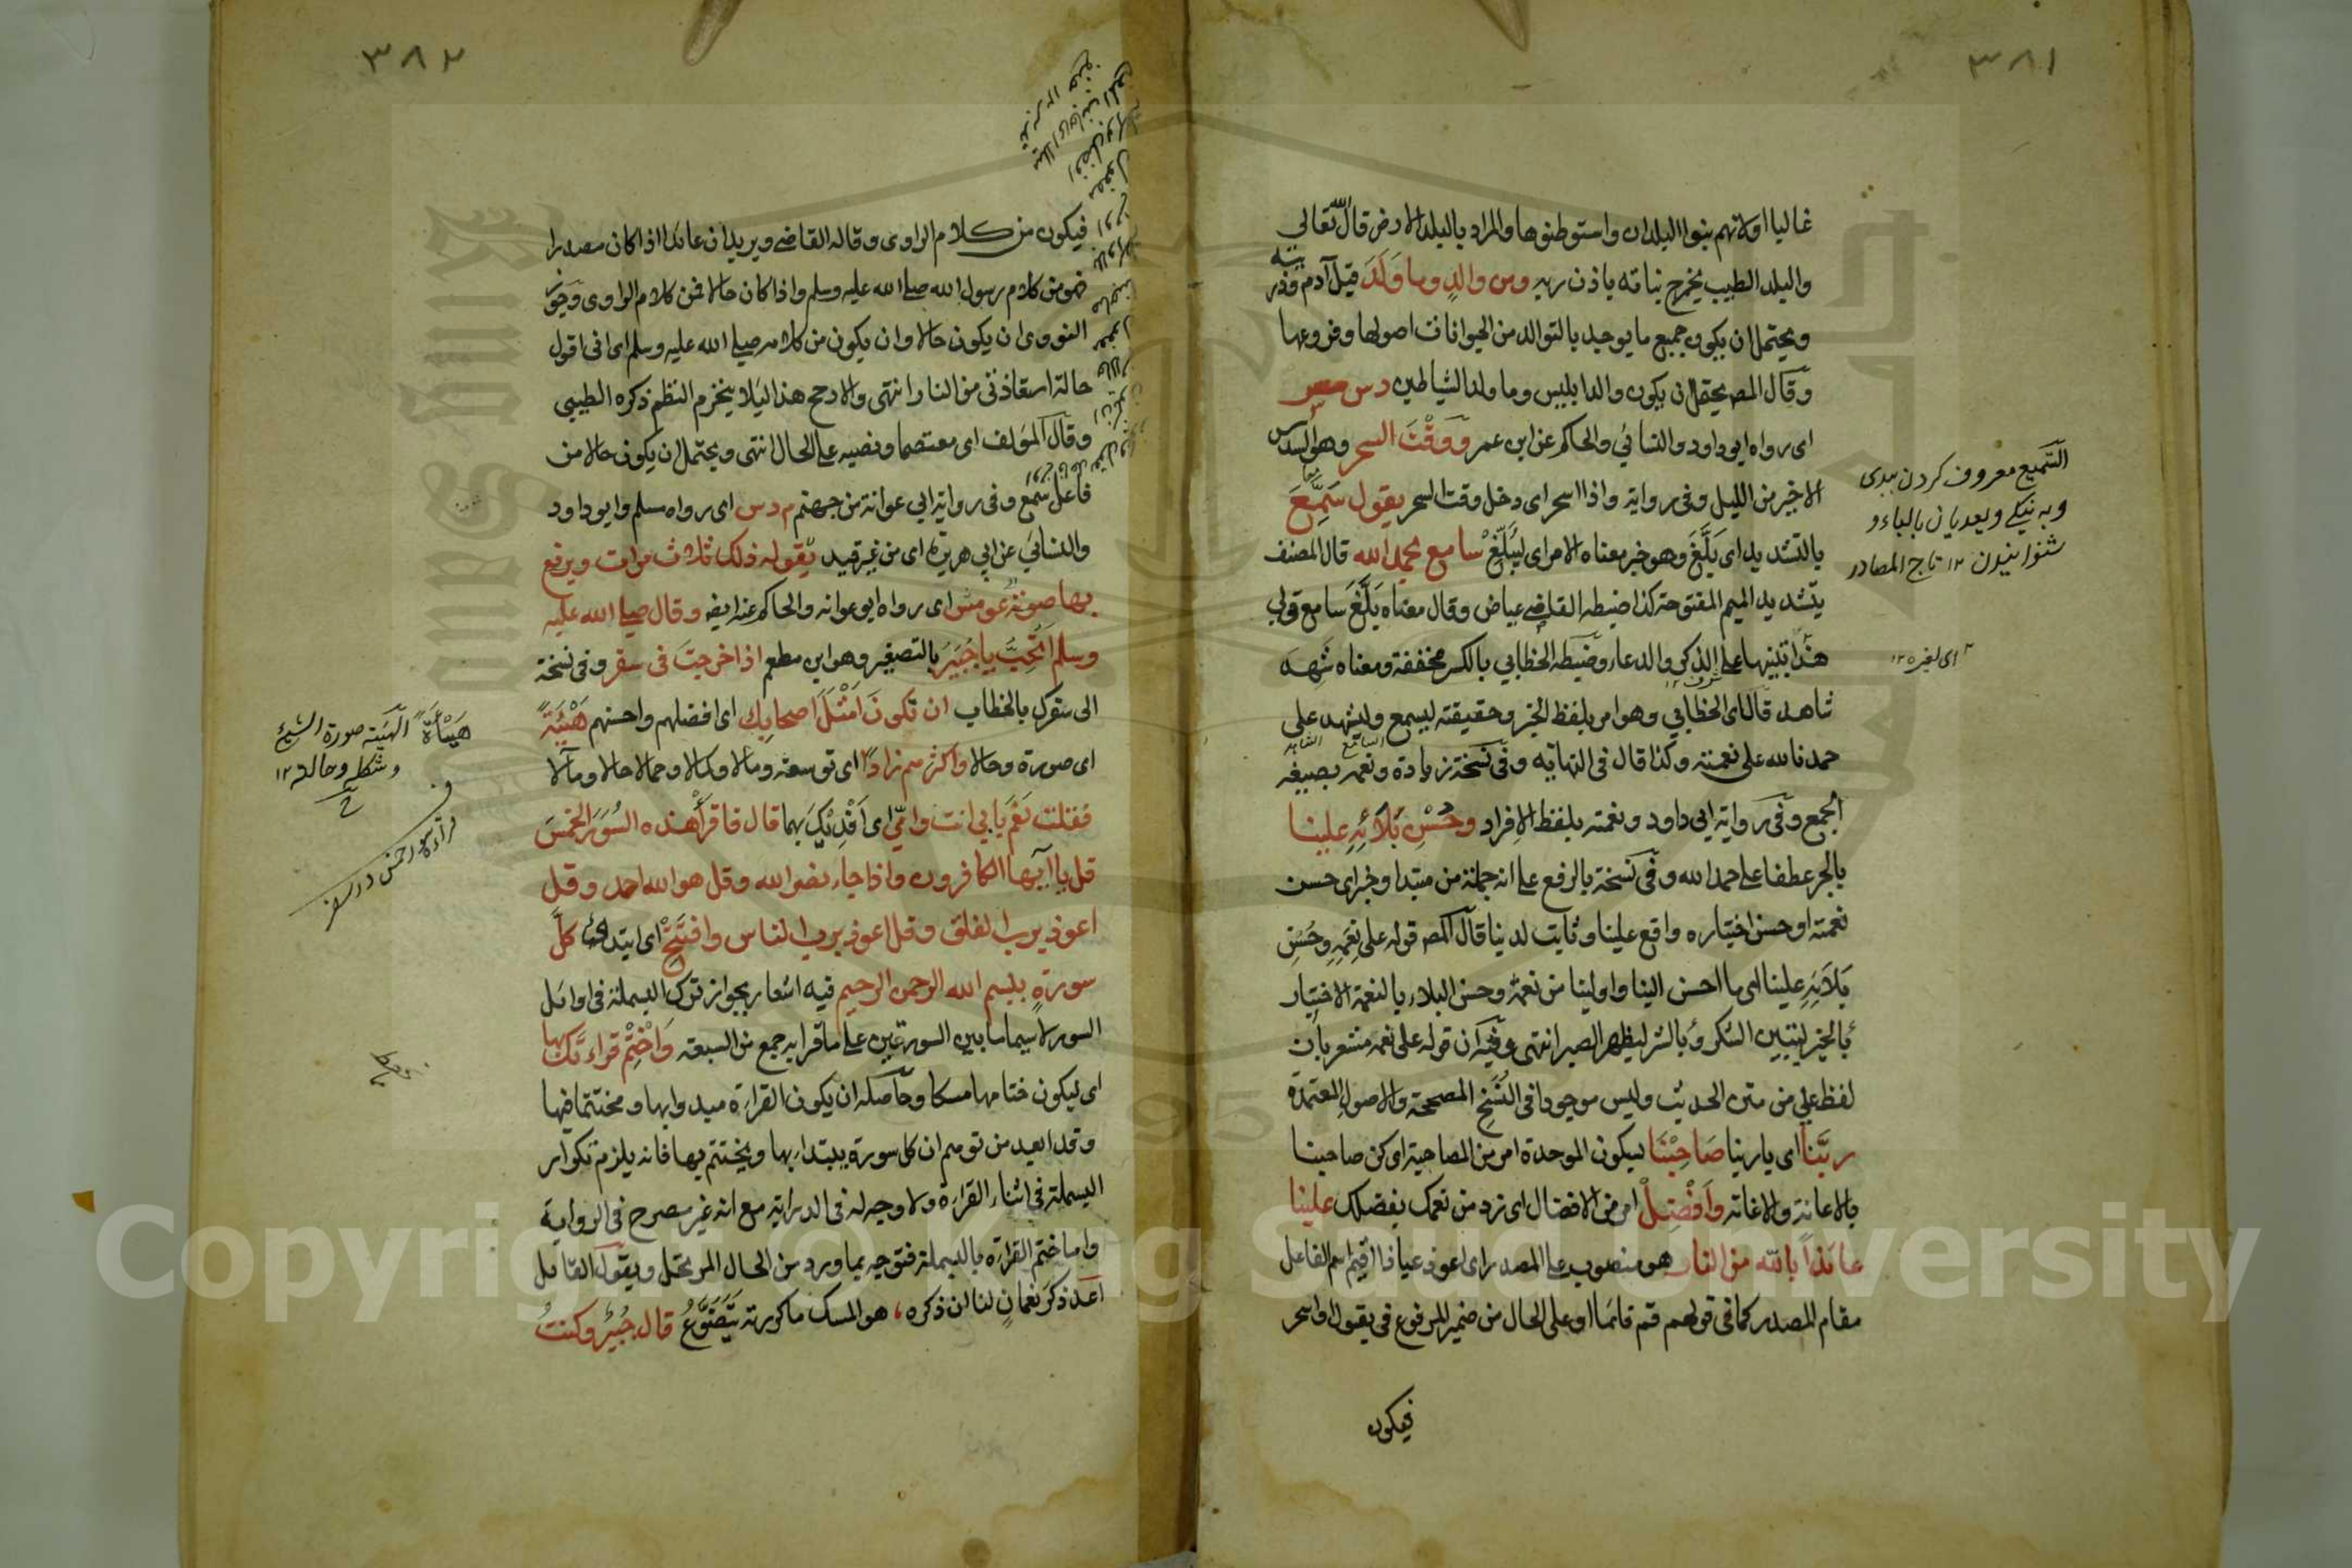 ٣٨١
غالبا اولانهم بنوا البلدان واستوطنوها والمراد بالبلد الارض قال الله تعالى
والبلد الطيب يخرج نباته باذن ربه ومن والد وما وَلَدَ قيل آدم وذريته
ويحتمل ان يكون جميع ما يوجد بالتوالد من الحيوانات اصولها وفروعها
وقال المصـ يحتمل ان يكون والد ابليس وما ولد الشياطين د س مس
اى رواه ابو داود والنسائي والحاكم عن ابن عمر ووَقْتَ السحر وهو السدس
الاخير من الليل وفى رواية واذا اسحر اى دخل وقت السحر يقول سَمِعَ
بالتشديد اى بَلَّغَ وهو خبر معناه الامر اى ليُبَلِّغْ سامع بحمد الله قال المصنف
بتشديد الميم المفتوحة كذا ضبطه القاضى عياض وقال معناه بَلَّغَ سامع قولى
هذا تنبيها على الذكر والدعاء وضبطه الخطابي بالكسر مخففة ومعناه شَهِدَ
شاهد قال اى الخطابي وهو امر بلفظ الخبر وحقيقته ليسمع السامع وليشهد الشاهد على
حمدنا لله على نعمته وكذا قال فى النهاية وفى نسخة زيادة ونعمه بصيغة
الجمع وفى رواية ابى داود ونعمته بلفظ الافراد وحُسْنِ بَلَائِهِ علينا
بالجر عطفا على حمد الله وفى نسخة بالرفع على انه جملة من مبتدا وخبر اى حسن
نعمته او حسن اختياره واقع علينا وثابت لدينا قال المصـ قوله على نِعَمِهِ وحُسْنِ
بَلَائِهِ علينا اى ما احسن الينا واولينا من نعمه وحسن البلاء بالنعمة الاختبار
بالخير ليتبين الشكر وبالشر ليظهر الصبر انتهى وفيه ان قوله على نعمه مشعر بان
لفظ على من متن الحديث وليس موجودا فى النُسَخِ المصححة والاصول المعتمدة
ربَّنا اى يا ربنا صَاحِبْنَا بسكون الموحدة امر من المصاحبة اى كن صاحبنا
بالاعانة والاغاثة واَفْضِلْ امر من الافضال اى زد من نعمك بفضلك علينا
عائذاً بالله من النار هو منصوب على المصدر اى اعوذ عياذا اقيم اسم الفاعل
مقام المصدر كما فى قولهم قم قائما او على الحال من ضمير المرفوع فى يقول او اسحر
فيكون
التسميع معروف كردن ببدى
وبه نيكى ويعديان بالباء و
شنوانيدن ١٢ تاج المصادر
اى لغيره ١٢
٣٨٢
فيكون من كلام الراوى وقاله القاضى ويريد ان عائذا اذا كان مصدرا
فهو من كلام رسول الله صلى الله عليه وسلم واذا كان حالا فمن كلام الراوى وجوّز
النووى ان يكون حالا وان يكون من كلامه صلى الله عليه وسلم اى انى اقول
حالة استعاذتى من النار انتهى والارجح هذا ليَلا ينخرم النظم ذكره الطيبى
وقال المؤلف اى معتصما ونصبه على الحال انتهى ويحتمل ان يكون حالا من
فاعل سمع وفى رواية ابى عوانة من جهنم م د س اى رواه مسلم وابو داود
والنسائى عن ابى هريرة اى من غير قيد يقوله ذلك ثلاث مرات ويرفع
بها صوته عو مس اى رواه ابو عوانه والحاكم عنه ايضـ وقال صلى الله عليه
وسلم اَتُحِبُّ يا جُبَيْرُ بالتصغير وهو ابن مطعم اذا خرجتَ فى سفر وفى نسخة
الى سفرك بالخطاب ان تكونَ اَمْثَلَ اصحابِك اى افضلهم واحسنهم هَيْئَةً
اى صورة وحالا واكثرهم زاداً اى توسعة ومالا وكمالا وجمالا حالا ومآلا
فقلت نَعَمْ بابى انت وامّى اى اَفْدِيْكَ بهما قال فاقرأْ هذه السُوَرَ الخَمْسَ
قل يا ايها الكافرون واذا جاء نصر الله وقل هو الله احد وقل
اعوذ برب الفلق وقل اعوذ برب الناس وافتَتِحْ اى ابتدائ كلَّ
سورةٍ ببسم الله الرحمن الرحيم فيه اشعار بجواز ترك البسملة فى اوائل
السور لا سيما ما بين السورتين على ما قرا به جمع من السبعة وَاخْتِمْ قراءتَك بها
اى ليكون ختامها مسكا وحاصله ان يكون القراءة مبدوا بها ومختتما فيها
وقد ابعد من توهم ان كل سورة يبتداء بها ويختتم بها فانه يلزم تكرار
البسملة فى اثناء القراءة ولا وجه له فى الدراية مع انه غير مصرح فى الرواية
واما ختم القراءة بالبسملة فتوجيه بما ورد من الحال المرتحل ويقول القائل
اَعد ذكرَ نعمانٍ لنا ان ذكره ، هو المسك ما كررته يَتَضَوَّعُ قال جُبَيْرٌ وكنتُ
هَيْئَةً الهيئة صورة الشئ
وشكله وحالته ١٢
Copyright © King Saud University